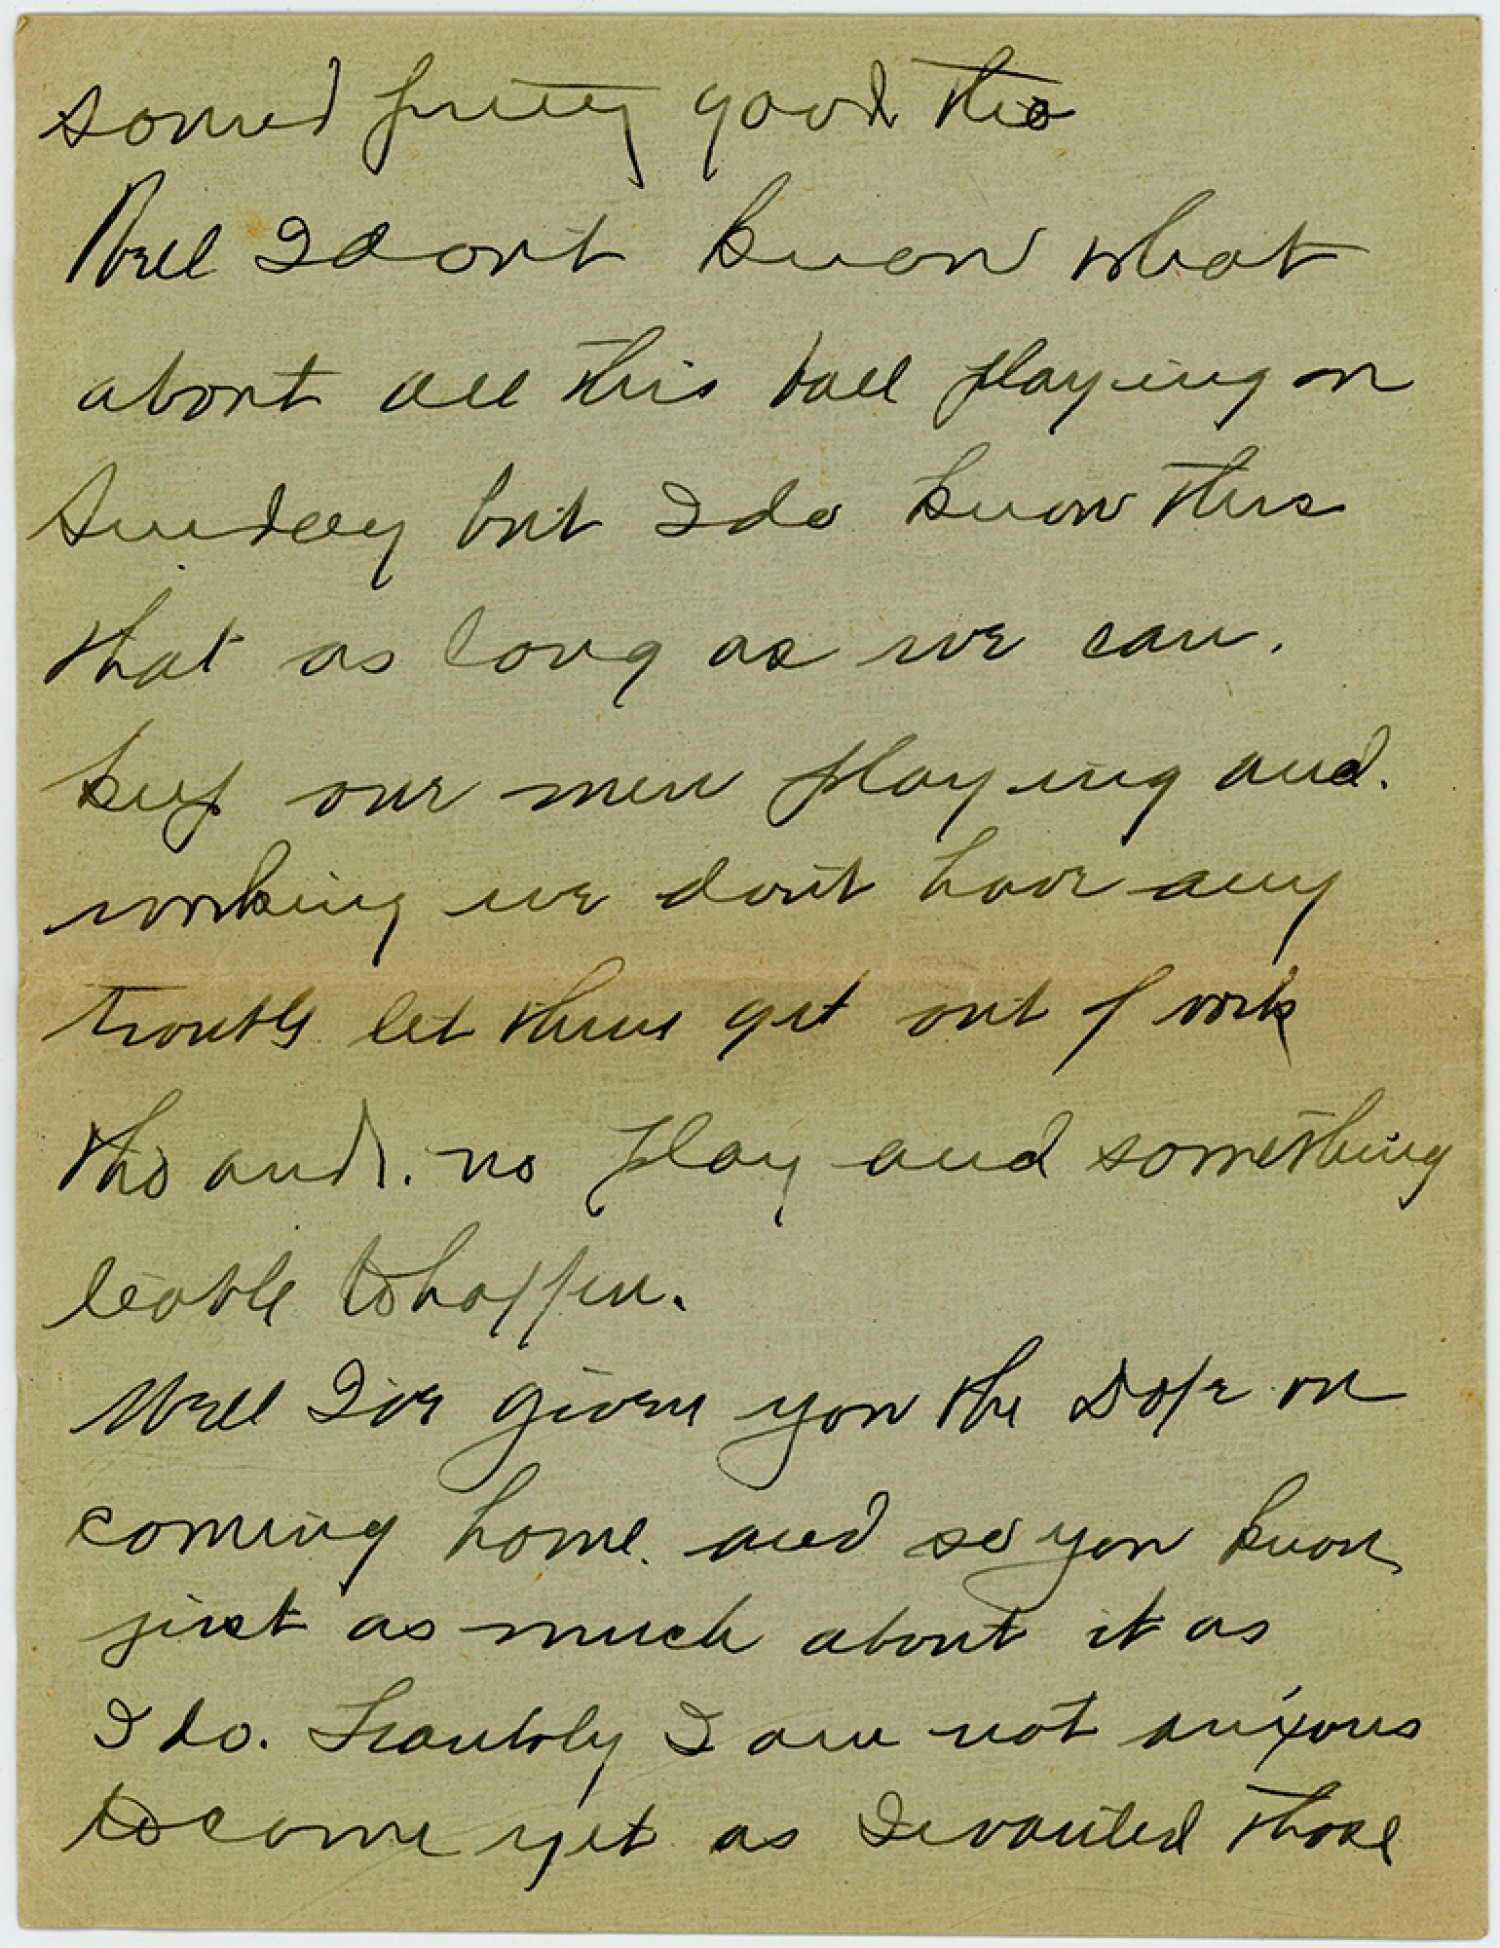 sound pretty good tho
Well I don't know what
about all this ball playing on
Sunday but I do know this
that as long as we can.
keep our men playing and.
working we don't have any
trouble let them get out of work
tho and. no play and something
leable to happen.
Well I've given you the Dope on
coming home. and so you know
just as much about it as
I do. Frankly I am not anixous
to come yet as I wanted those